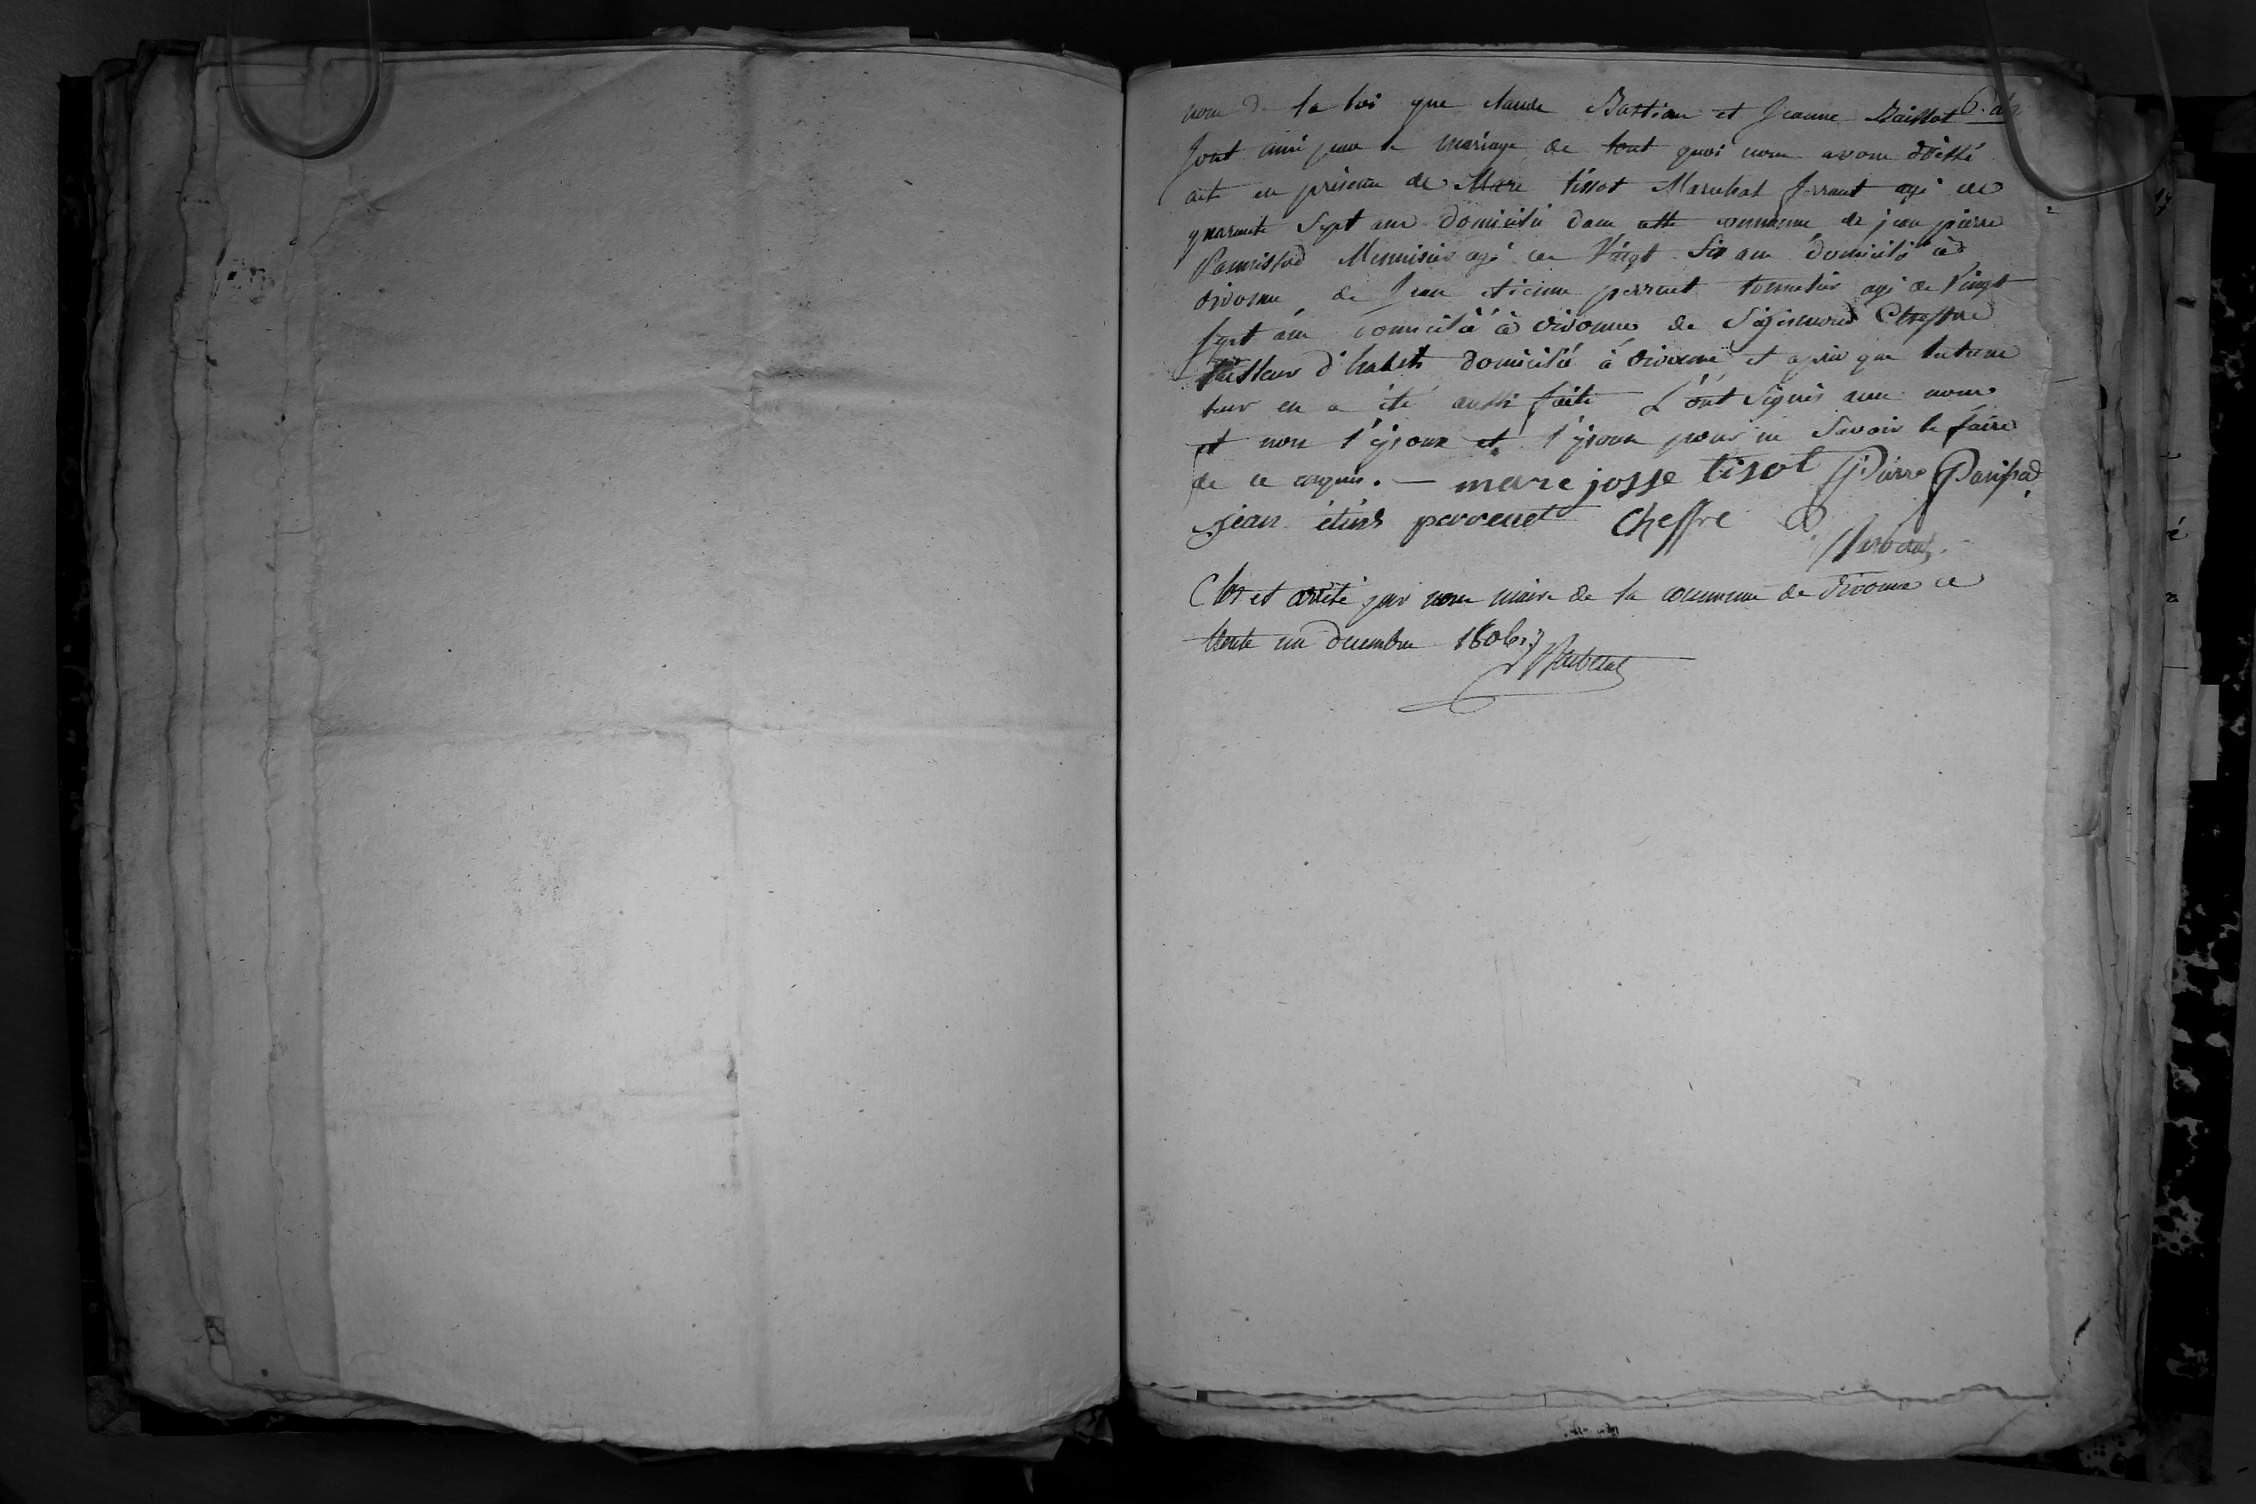 nom de la loi que claude Bastian et Jeanne Baissat
sont unis par le mariage de tout quoi nous avons dressé
acte en présence de Marc tissot Marechal ferrant agé de
quarante Sept ans domicilié dans cette commune de jean pierre
Panrissod Menuisier agé de Vingt Six ans domicilié à
divonne de Jean etienne perrenet tonnelier agé de Vingt
Sept ans domicilié à divonne de Sigismond Cheffre
tailleur d'habits domicilié à divonne et après que lecture
leur en a été aussi faite L'ont Signés avec nous
et non l'époux et l'épouse pour ne Savoir le faire
de ce requis. — marc josse tisot Pierre Parisod
jean etiene perrenet Cheffre
Clos et arrêté par nous maire de la commune de Divonne ce
trente un decembre 1806